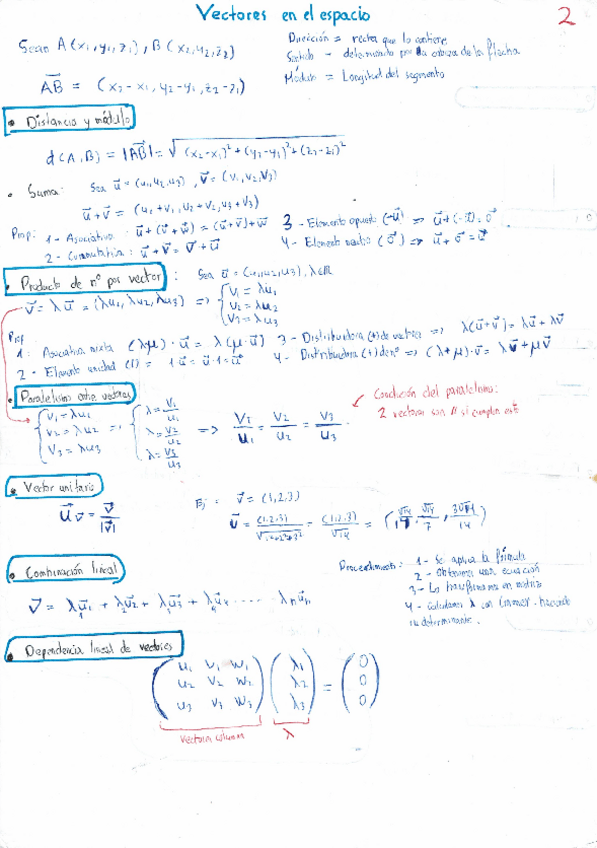 Vectores en el espacio
2
Sean A(x₁,y₁,z₁), B(x₂,y₂,z₂)
Dirección = recta que lo contiene
Sentido - determinado por la cabeza de la flecha
Módulo = Longitud del segmento
AB⃗ = (x₂-x₁, y₂-y₁, z₂-z₁)
• Distancia y módulo
d(A,B) = |AB⃗| = √(x₂-x₁)²+(y₂-y₁)²+(z₂-z₁)²
• Suma: Sea u⃗ = (u₁,u₂,u₃), v⃗ = (v₁,v₂,v₃)
u⃗+v⃗ = (u₁+v₁, u₂+v₂, u₃+v₃)
Prop: 1- Asociativa: u⃗+(v⃗+w⃗) = (u⃗+v⃗)+w⃗
2- Conmutativa: u⃗+v⃗ = v⃗+u⃗
3- Elemento opuesto (-u⃗) => u⃗+(-u⃗)=0⃗
4- Elemento neutro (0⃗) => u⃗+0⃗=u⃗
• Producto de nº por vector: Sea u⃗ = (u₁,u₂,u₃), λ∈ℝ
v⃗ = λu⃗ = (λu₁, λu₂, λu₃) => { v₁ = λu₁
v₂ = λu₂
v₃ = λu₃
Prop
1- Asociativa mixta (λμ)·u⃗ = λ(μ·u⃗)
2- Elemento unidad (1) = 1·u⃗=u⃗·1=u⃗
3- Distributiva (+) de vectores => λ(u⃗+v⃗) = λu⃗+λv⃗
4- Distributiva (+) de nº => (λ+μ)·v⃗ = λv⃗+μv⃗
• Paralelismo entre vectores
{ v₁ = λu₁ v₂ = λu₂ v₃ = λu₃ => { λ = v₁/u₁ λ = v₂/u₂ λ = v₃/u₃ => v₁/u₁ = v₂/u₂ = v₃/u₃
Condición del paralelismo:
2 vectores son // si cumplen esto
• Vector unitario
u⃗v⃗ = v⃗/|v⃗|
Ej: v⃗ = (1,2,3)
v⃗ = (1,2,3)/√1²+2²+3² = (1,2,3)/√14 = (√14/14, √14/7, 3√14/14)
• Combinación lineal
v⃗ = λ₁u⃗₁ + λ₂u⃗₂ + λ₃u⃗₃ + λ₄u⃗₄ ..... λₙu⃗ₙ
Procedimiento: 1- Se aplica la fórmula
2- Obtenemos una ecuación
3- La transformamos en matriz
4- Calculamos λ con Cramer haciendo
su determinante.
• Dependencia lineal de vectores
(u₁ v₁ w₁) (λ₁) (0)
(u₂ v₂ w₂) (λ₂) = (0)
(u₃ v₃ w₃) (λ₃) (0)
Vectores columna
λ